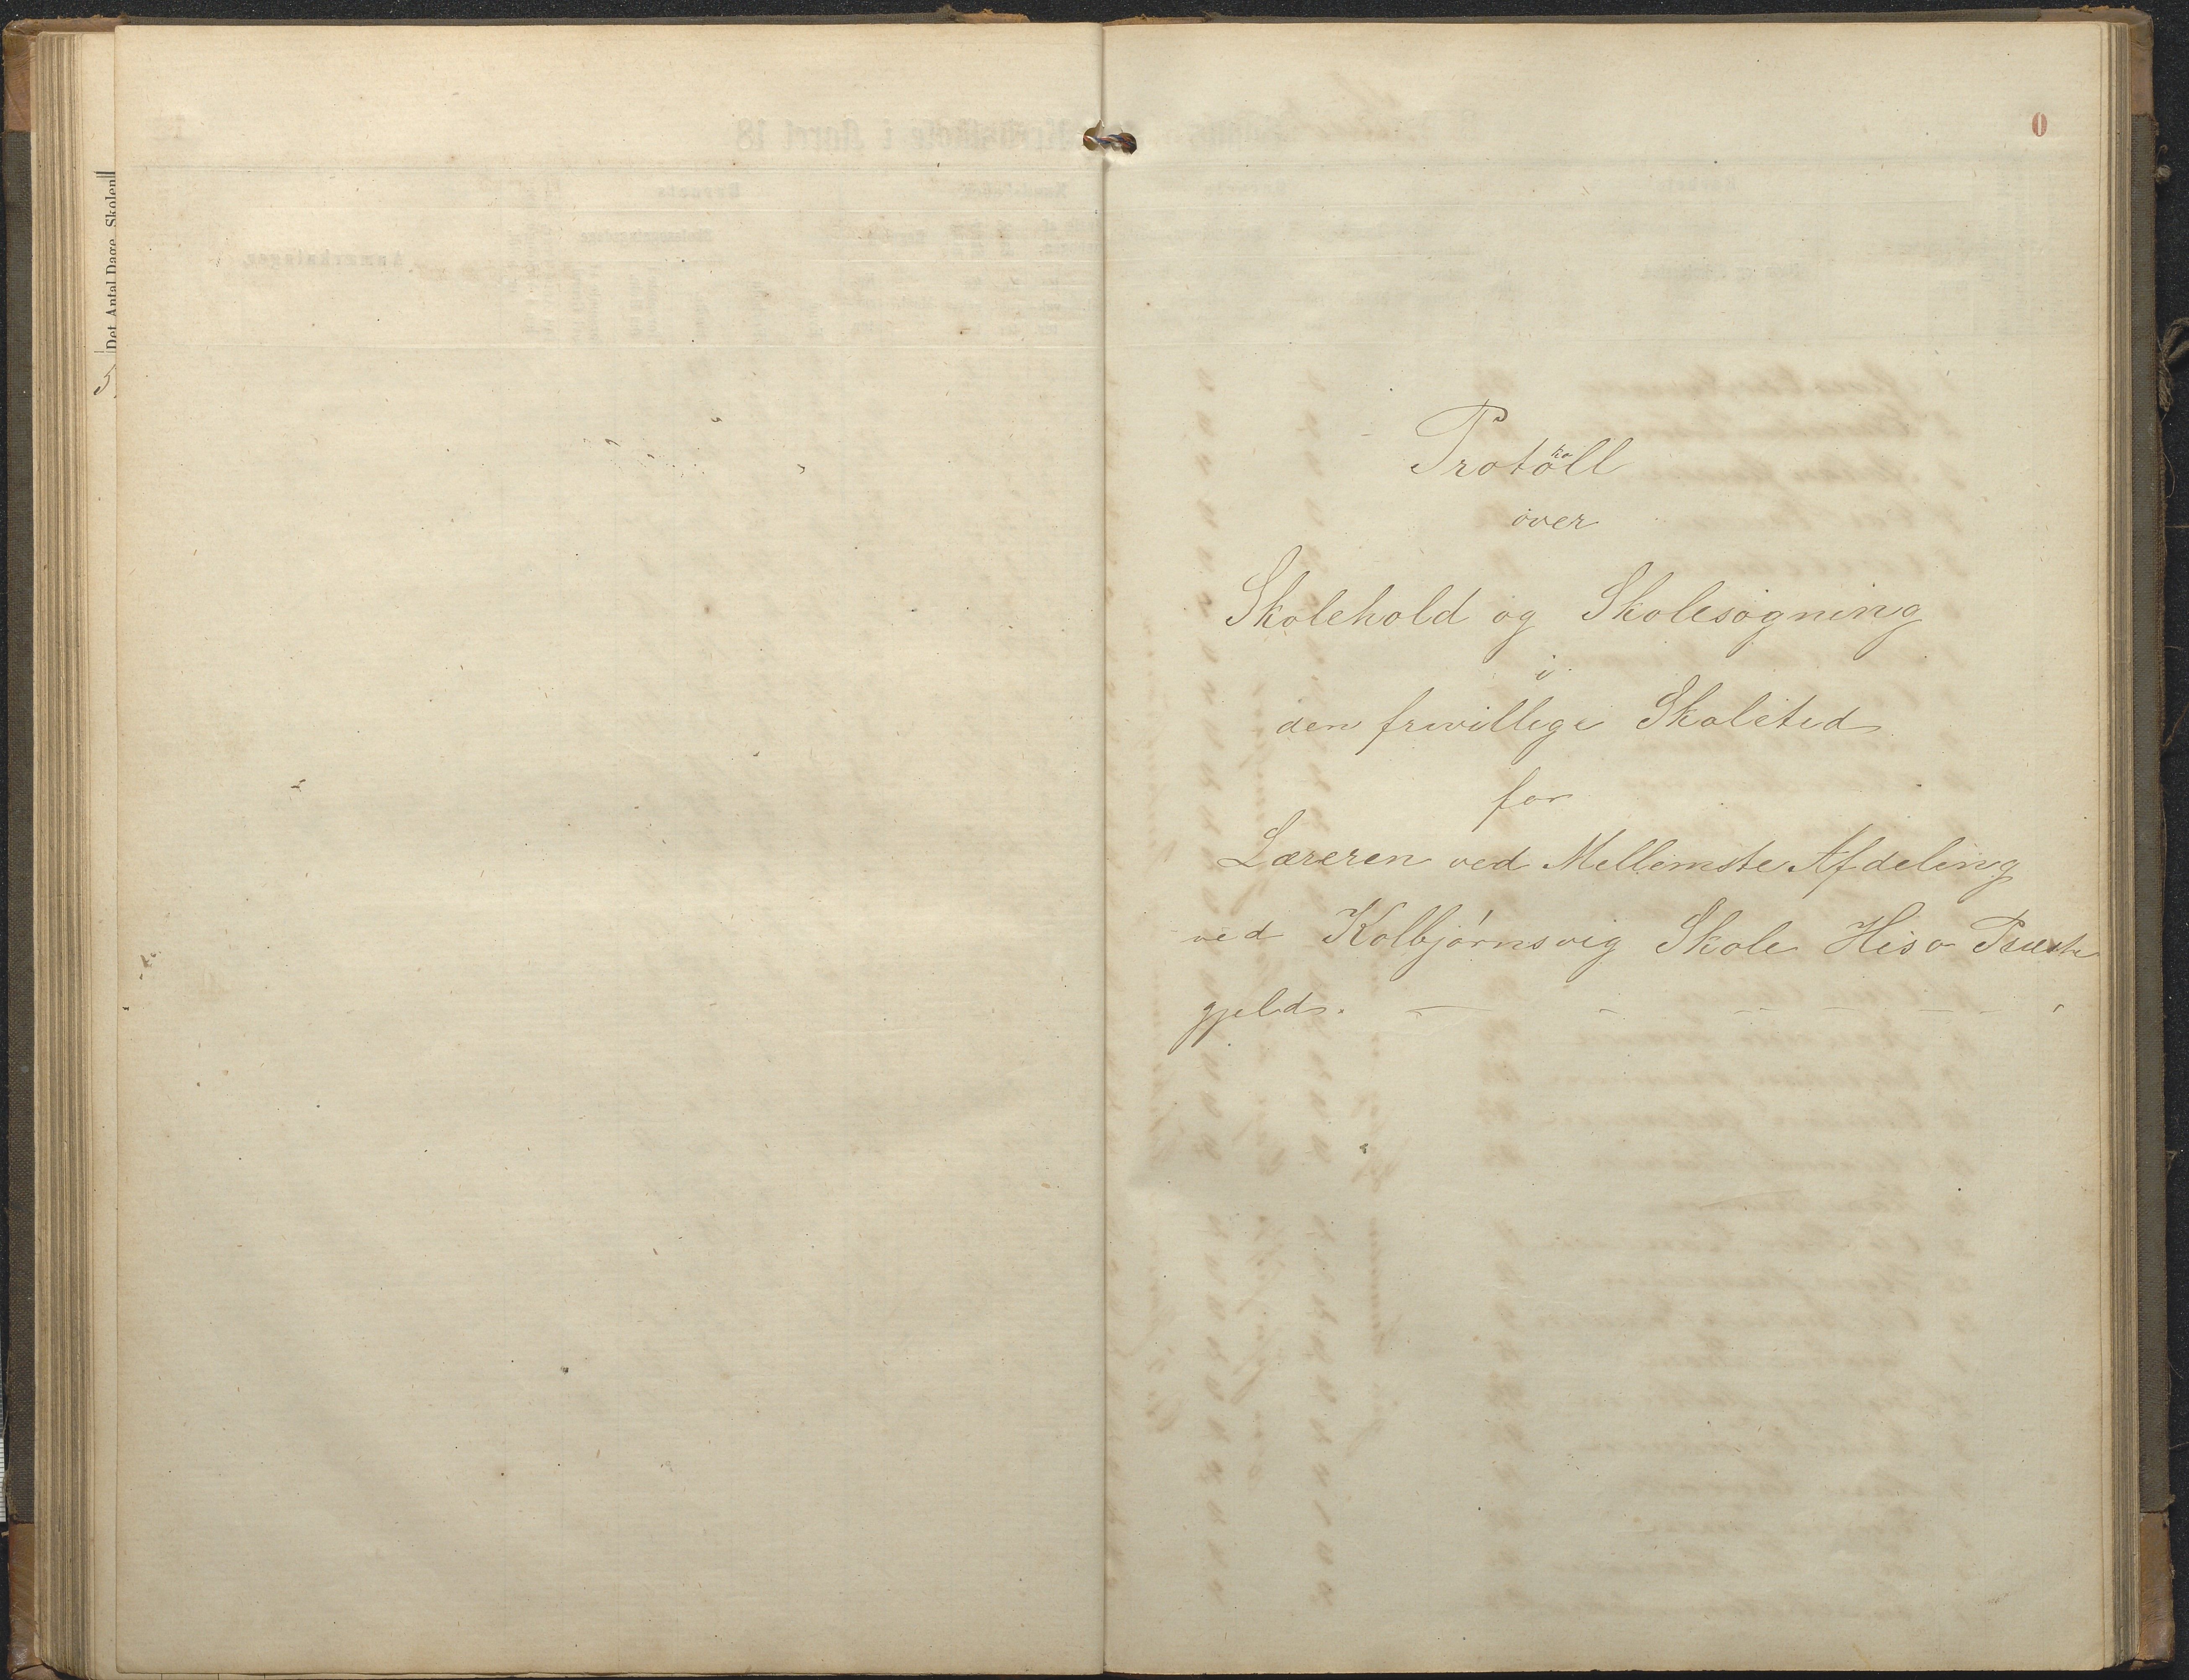 Det Antal Dage Skolen
0
Protokoll
over
Skolehold og Skolesøgning
i
den frivillige Skoletid
for
Læreren ved Mellemste Afdeling
ved Kolbjørnsvig Skole Hisø Præste
gjeld.